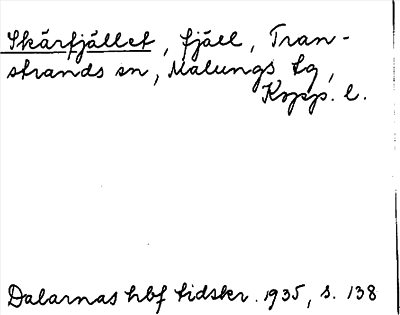 Skärfjället, fjäll, Tran-
strands sn, Malungs tg,
Kopp. l.
Dalarnas hbf tidskr. 1935, s. 138